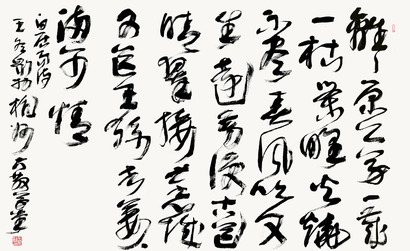 離離原上草一歲
一枯榮野火燒
不盡春風吹又
生遠芳侵古道
晴翠接荒城
又送王孫去萋萋
滿別情
白居易詩